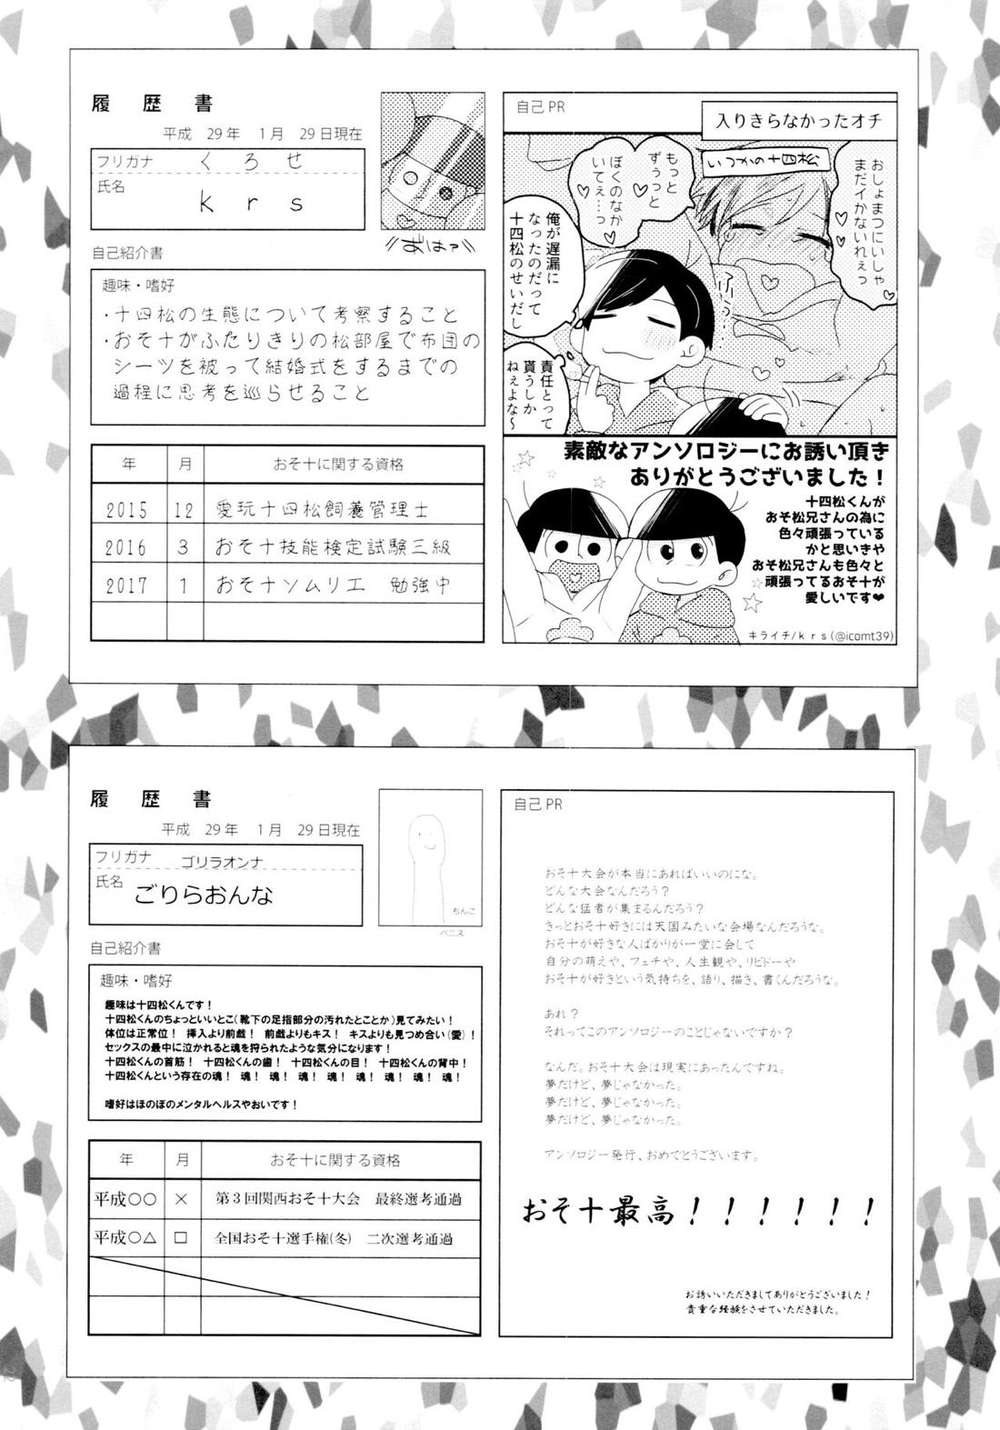 履歴書
平成 29年 1月 29日現在
フリガナ くろせ
氏名
krs
おはァ
自己紹介書
趣味・嗜好
・十四松の生態について考察すること
・おそ十がふたりきりの松部屋で布団の
シーツを被って結婚式をするまでの
過程に思考を巡らせること
年 月 おそ十に関する資格
2015 12 愛玩十四松飼養管理士
2016 3 おそ十技能検定試験三級
2017 1 おそ十ソムリエ 勉強中
自己PR
入りきらなかったオチ
いつかの十四松
おしょまつにいしゃ
まだイかないれぇっ
もっと
ずぅっと
ぼくのなか
いてぇ…っ
俺が遅漏に
なったのだって
十四松のせいだし
責任とって
貰うしか
ねぇよな～
素敵なアンソロジーにお誘い頂き
ありがとうございました！
十四松くんが
おそ松兄さんの為に
色々頑張っている
かと思いきや
おそ松兄さんも色々と
頑張ってるおそ十が
愛しいです❤
キライチ/krs(@icomt39)
履歴書
平成 29年 1月 29日現在
フリガナ ゴリラオンナ
氏名
ごりらおんな
ちんこ
ペニス
自己紹介書
趣味・嗜好
趣味は十四松くんです！
十四松くんのちょっといいとこ（靴下の足指部分の汚れたとことか）見てみたい！
体位は正常位！ 挿入より前戯！ 前戯よりもキス！ キスよりも見つめ合い（愛）！
セックスの最中に泣かれると魂を狩られたような気分になります！
十四松くんの首筋！ 十四松くんの歯！ 十四松くんの目！ 十四松くんの背中！
十四松くんという存在の魂！ 魂！ 魂！ 魂！ 魂！ 魂！ 魂！ 魂！ 魂！
嗜好はほのぼのメンタルヘルスやおいです！
年 月 おそ十に関する資格
平成○○ × 第3回関西おそ十大会 最終選考通過
平成○△ □ 全国おそ十選手権(冬) 二次選考通過
自己PR
おそ十大会が本当にあればいいのにな。
どんな大会なんだろう？
どんな猛者が集まるんだろう？
きっとおそ十好きには天国みたいな会場なんだろうな。
おそ十が好きな人ばかりが一堂に会して
自分の萌えや、フェチや、人生観や、リビドーや
おそ十が好きという気持ちを、語り、描き、書くんだろうな。
あれ？
それってこのアンソロジーのことじゃないですか？
なんだ。おそ十大会は現実にあったんですね。
夢だけど、夢じゃなかった。
夢だけど、夢じゃなかった。
夢だけど、夢じゃなかった。
アンソロジー発行、おめでとうございます。
おそ十最高！！！！！！
お誘いいただきましてありがとうございました！
貴重な経験をさせていただきました。